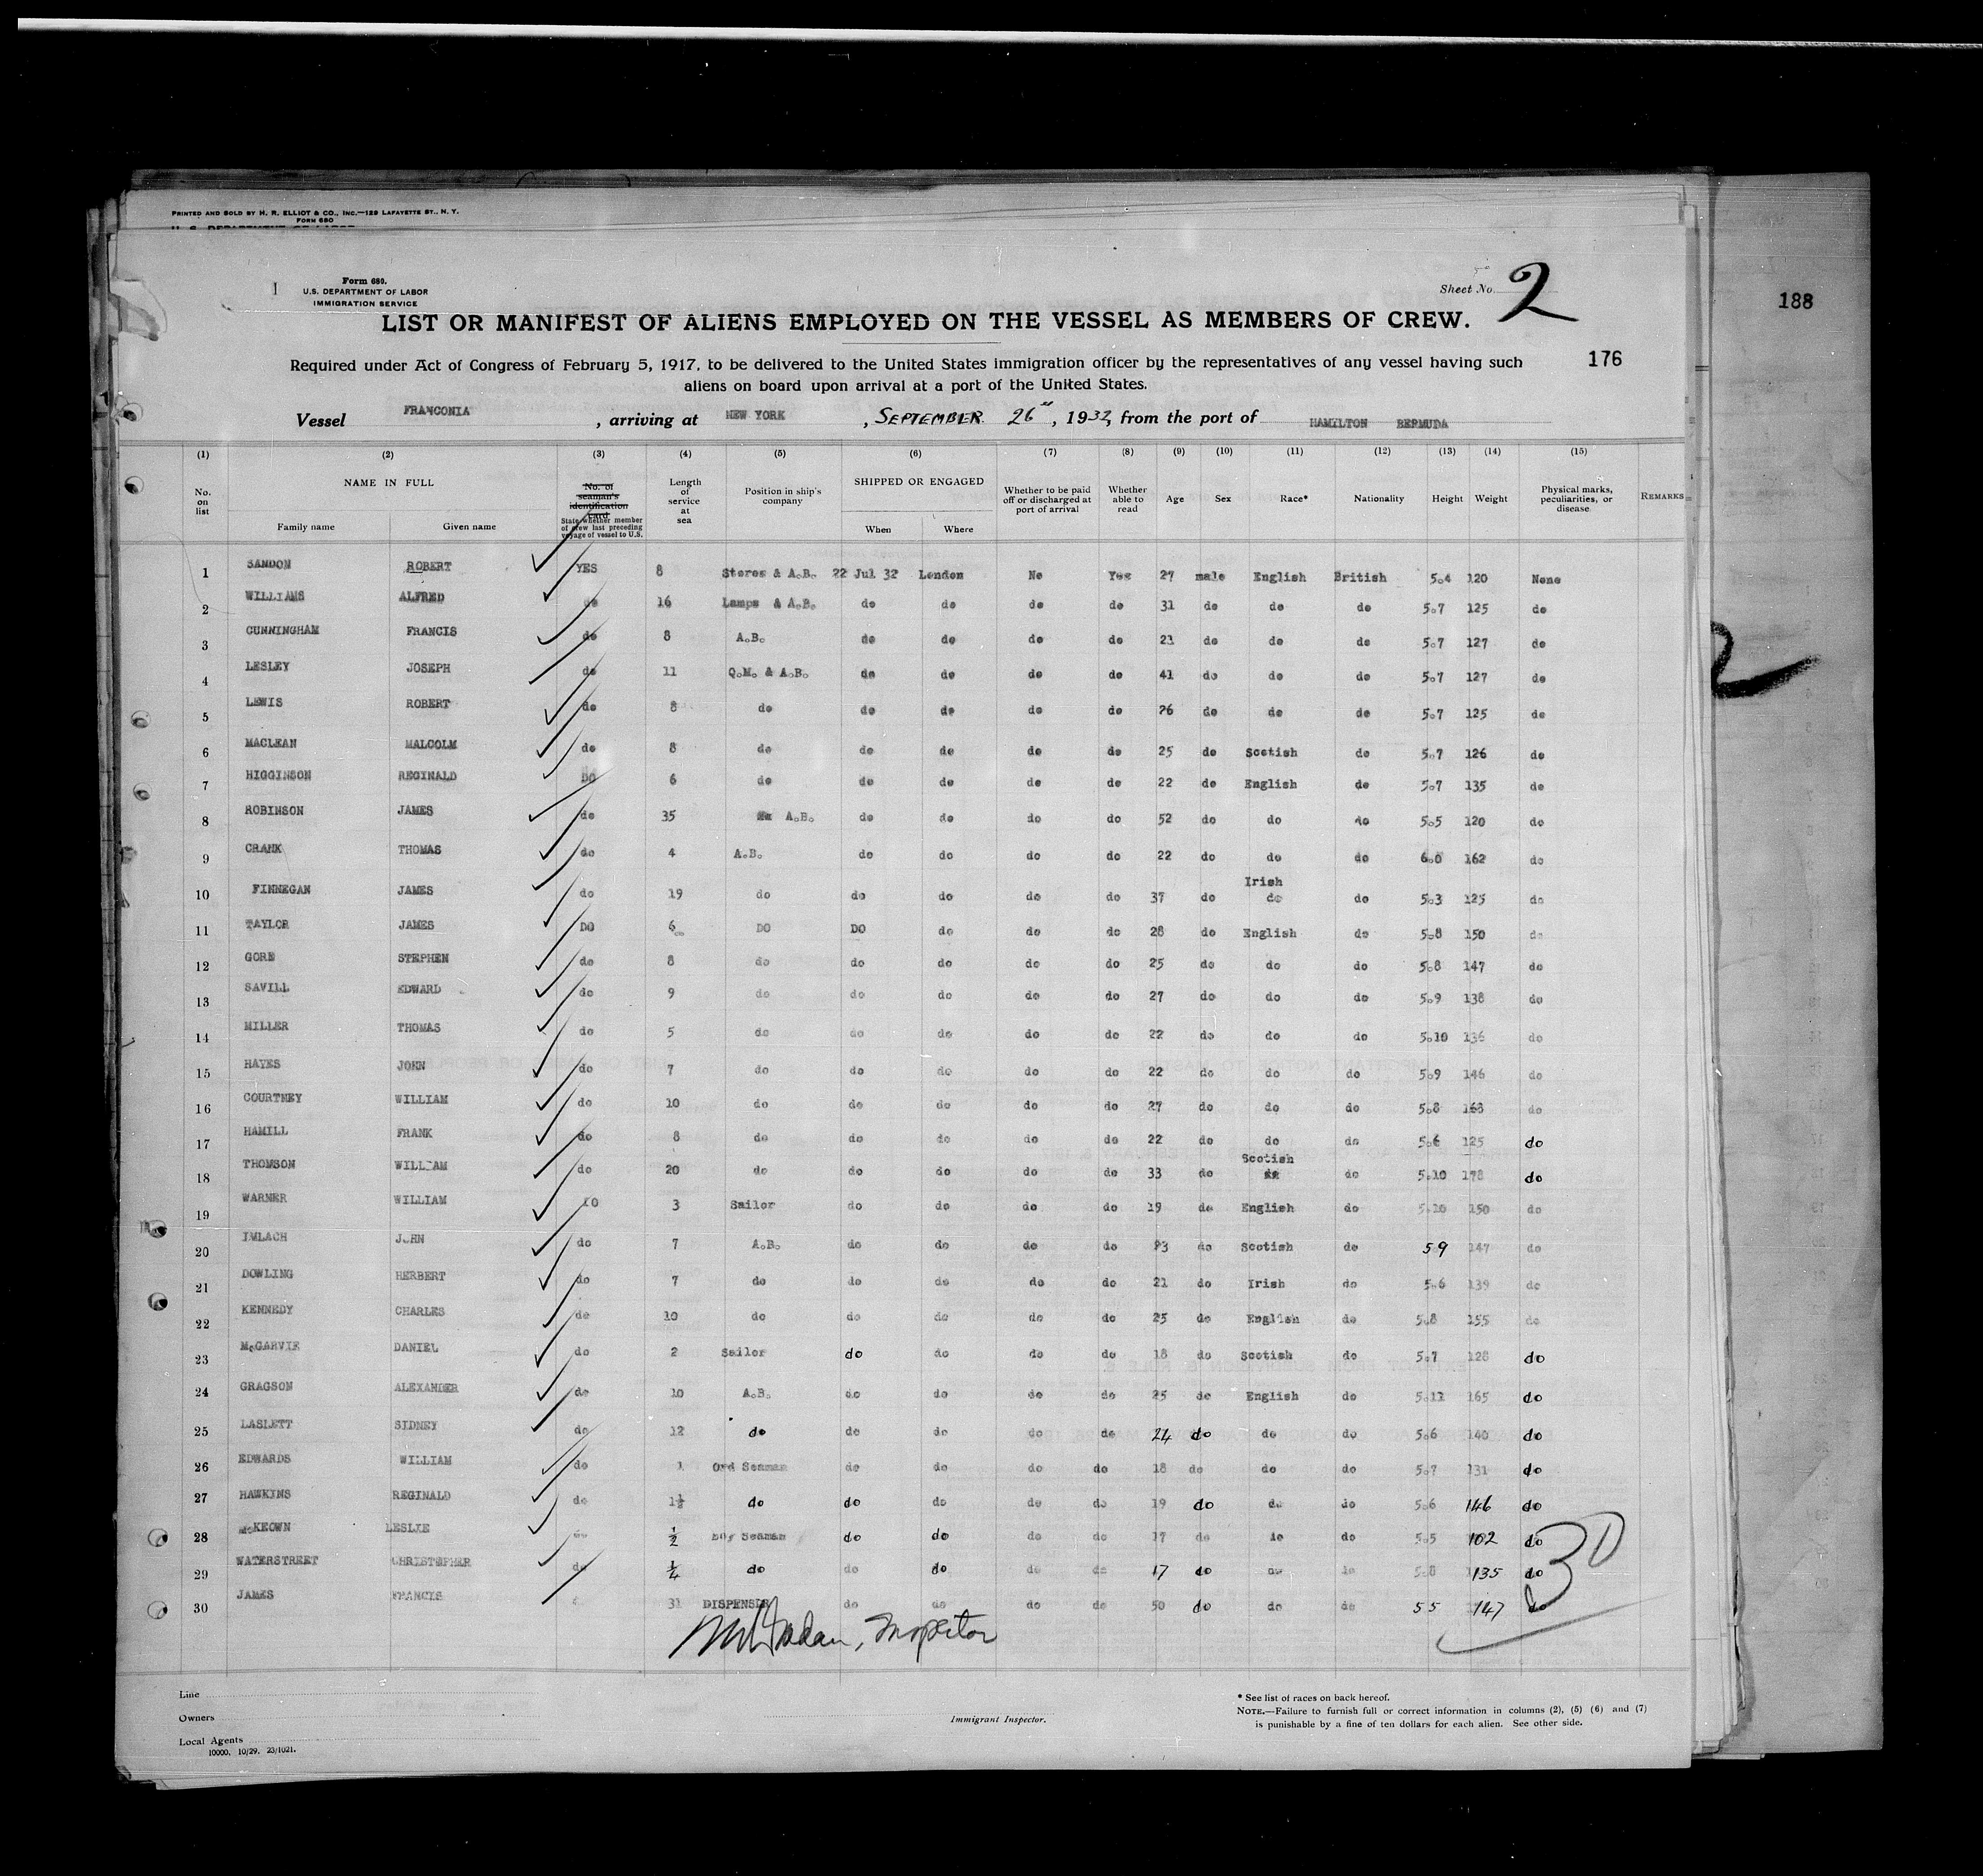 PRINTED AND SOLD BY H. R. ELLIOT & CO., INC.—129 LAFAYETTE ST., N. Y.
FORM 680
U. S. DEPARTMENT OF LABOR
Form 680.
U.S. DEPARTMENT OF LABOR
IMMIGRATION SERVICE
Sheet No. 2
188
LIST OR MANIFEST OF ALIENS EMPLOYED ON THE VESSEL AS MEMBERS OF CREW.
Required under Act of Congress of February 5, 1917, to be delivered to the United States immigration officer by the representatives of any vessel having such
176
aliens on board upon arrival at a port of the United States.
Vessel FRANCONIA, arriving at NEW YORK, SEPTEMBER 26, 1932, from the port of HAMILTON BERMUDA
(1) (2) (3) (4) (5) (6) (7) (8) (9) (10) (11) (12) (13) (14) (15)
No. on list NAME IN FULL Family name Given name No. of seaman's identification card State whether member of crew last preceding voyage of vessel to U.S. Length of service at sea Position in ship's company SHIPPED OR ENGAGED When Where Whether to be paid off or discharged at port of arrival Whether able to read Age Sex Race* Nationality Height Weight Physical marks, peculiarities, or disease REMARKS
1 SANDON ROBERT YES 8 Stores & A.B. 22 Jul 32 London No Yes 27 male English British 5.4 120 None
2 WILLIAMS ALFRED do 16 Lamps & A.B. do do do do 31 do do do 5.7 125 do
3 CUNNINGHAM FRANCIS do 8 A.B. do do do do 23 do do do 5.7 127 do
4 LESLEY JOSEPH do 11 Q.M. & A.B. do do do do 41 do do do 5.7 127 do
5 LEWIS ROBERT do 8 do do do do do 26 do do do 5.7 125 do
6 MACLEAN MALCOLM do 8 do do do do do 25 do Scotish do 5.7 126 do
7 HIGGINSON REGINALD DO 6 do do do do do 22 do English do 5.7 135 do
8 ROBINSON JAMES do 35 A.B. do do do do 52 do do do 5.5 120 do
9 CRANK THOMAS do 4 A.B. do do do do 22 do do do 6.0 162 do
10 FINNEGAN JAMES do 19 do do do do do 37 do Irish do do 5.3 125 do
11 TAYLOR JAMES DO 6 DO DO do do do 28 do English do 5.8 150 do
12 GORE STEPHEN do 8 do do do do do 25 do do do 5.8 147 do
13 SAVILL EDWARD do 9 do do do do do 27 do do do 5.9 138 do
14 MILLER THOMAS do 5 do do do do do 22 do do do 5.10 136 do
15 HAYES JOHN do 7 do do do do do 22 do do do 5.9 146 do
16 COURTNEY WILLIAM do 10 do do do do do 27 do do do 5.8 168 do
17 HAMILL FRANK do 8 do do do do do 22 do do do 5.6 125 do
18 THOMSON WILLIAM do 20 do do do do do 33 do Scotish do 5.10 178 do
19 WARNER WILLIAM DO 3 Sailor do do do do 19 do English do 5.10 150 do
20 IMLACH JOHN do 7 A.B. do do do do 23 do Scotish do 59 147 do
21 DOWLING HERBERT do 7 do do do do do 21 do Irish do 5.6 139 do
22 KENNEDY CHARLES do 10 do do do do do 25 do English do 5.8 155 do
23 McGARVIE DANIEL do 2 Sailor do do do do 18 do Scotish do 5.7 128 do
24 GRAGSON ALEXANDER do 10 A.B. do do do do 25 do English do 5.11 165 do
25 LASLETT SIDNEY do 12 do do do do do 24 do do do 5.6 140 do
26 EDWARDS WILLIAM do 1 Ord Seaman do do do do 18 do do do 5.7 131 do
27 HAWKINS REGINALD do 1½ do do do do do 19 do do do 5.6 146 do
28 McKEOWN LESLIE ½ Boy Seaman do do do do 17 do do do 5.5 102 do
29 WATERSTREET CHRISTOPHER do ¼ do do do do do 17 do do do 5.8 135 do
30 JAMES FRANCIS 31 DISPENSER do do do do 50 do do do 55 147 do
30
Inspector
Line
Owners
Local Agents
10000. 10/29. 23/1021.
Immigrant Inspector.
* See list of races on back hereof.
NOTE.—Failure to furnish full or correct information in columns (2), (5) (6) and (7)
is punishable by a fine of ten dollars for each alien. See other side.